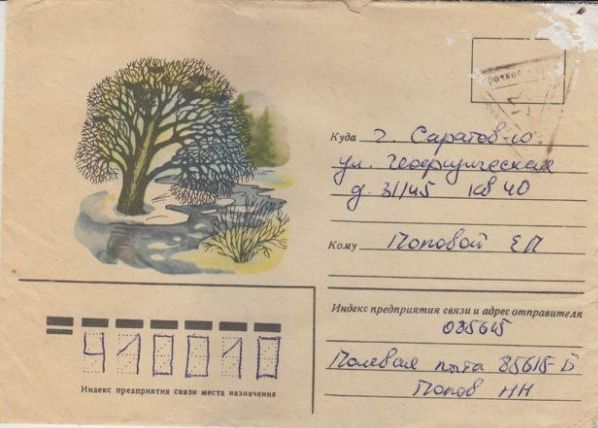 Куда г. Саратов-10
ул. Геофизическая
д. 31/45 кв 40
Кому Поповой ЕП
Индекс предприятия связи и адрес отправителя
035615
Полевая почта 85615-Б
Попов НН
410010
Индекс предприятия связи места назначения